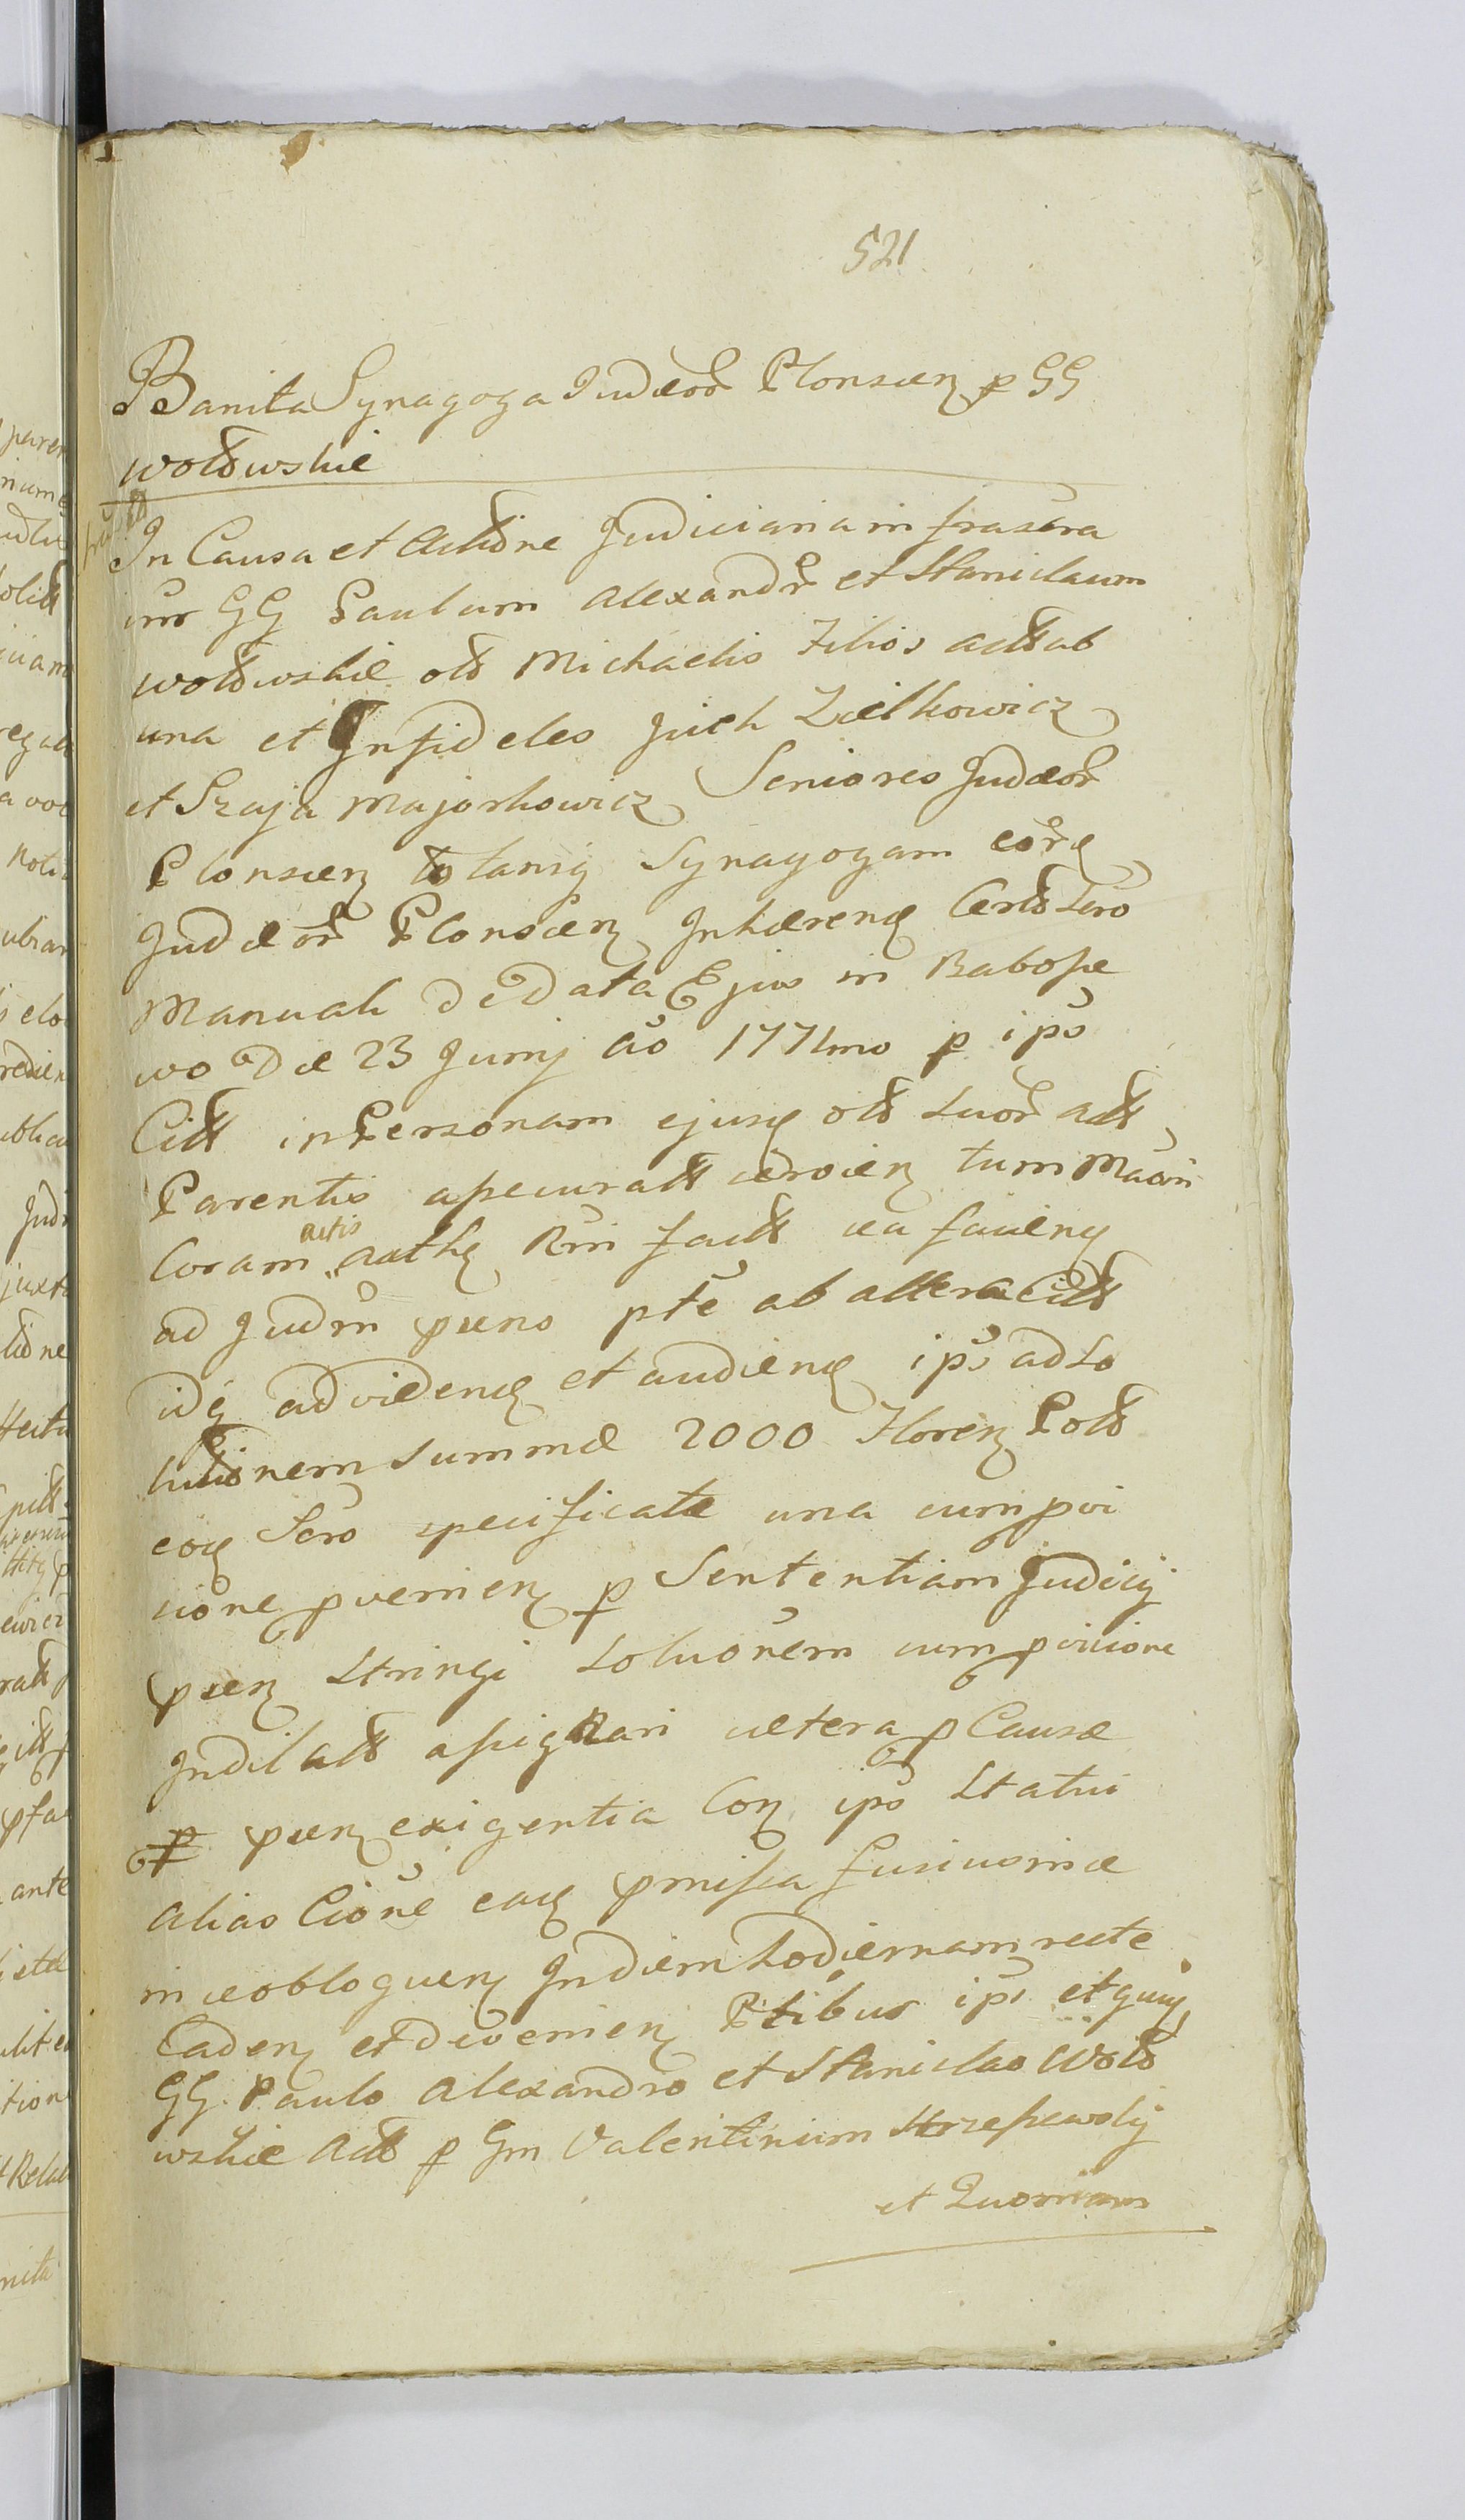 521
Banita Synagoga Judæor Plonscen p GG
Wołłowskie
In Causa et Actione Judiciaria infrascra
inr GG Paulum Alexandr et Stanislaum
Wołłowskie olt Michaelis Filios Act ab
una et Infideles Zielkowicz
et Szaja Majorkowicz Seniores Judæor
Plonscen totamq Synagogam eorq
Judæor Plonscen Inhærenq Certo Scro
Manuali de Data Ejus in Babosze
wo Die 23 Junij Ao 1771mo p ips
Citt in Personam ejusq olt suor Act
Parentis assecuratt tum
Coram Actis Auth Rni factt
ad Judm præns pte ab altera Citt
idq ad videnq et audienq ips ad So
lutionem Summæ 2000 Floren Polt
eoq Scro specificatæ una cum provi
sione provenien p Sententiam Judicij
præn stringi Solutionem cum provisione
Indilatt assignari cætera p Causæ
p præn exigentia Con ips Statui
alias Cione eaq præmissa fusius omnia
in se obloquen In diem hodiernam recte
Caden et devenien Ptibus ips et quiq
GG. Paulo Alexandro et Stanislao Wołło
wskie Act p Gm Valentinum
et Quoniam